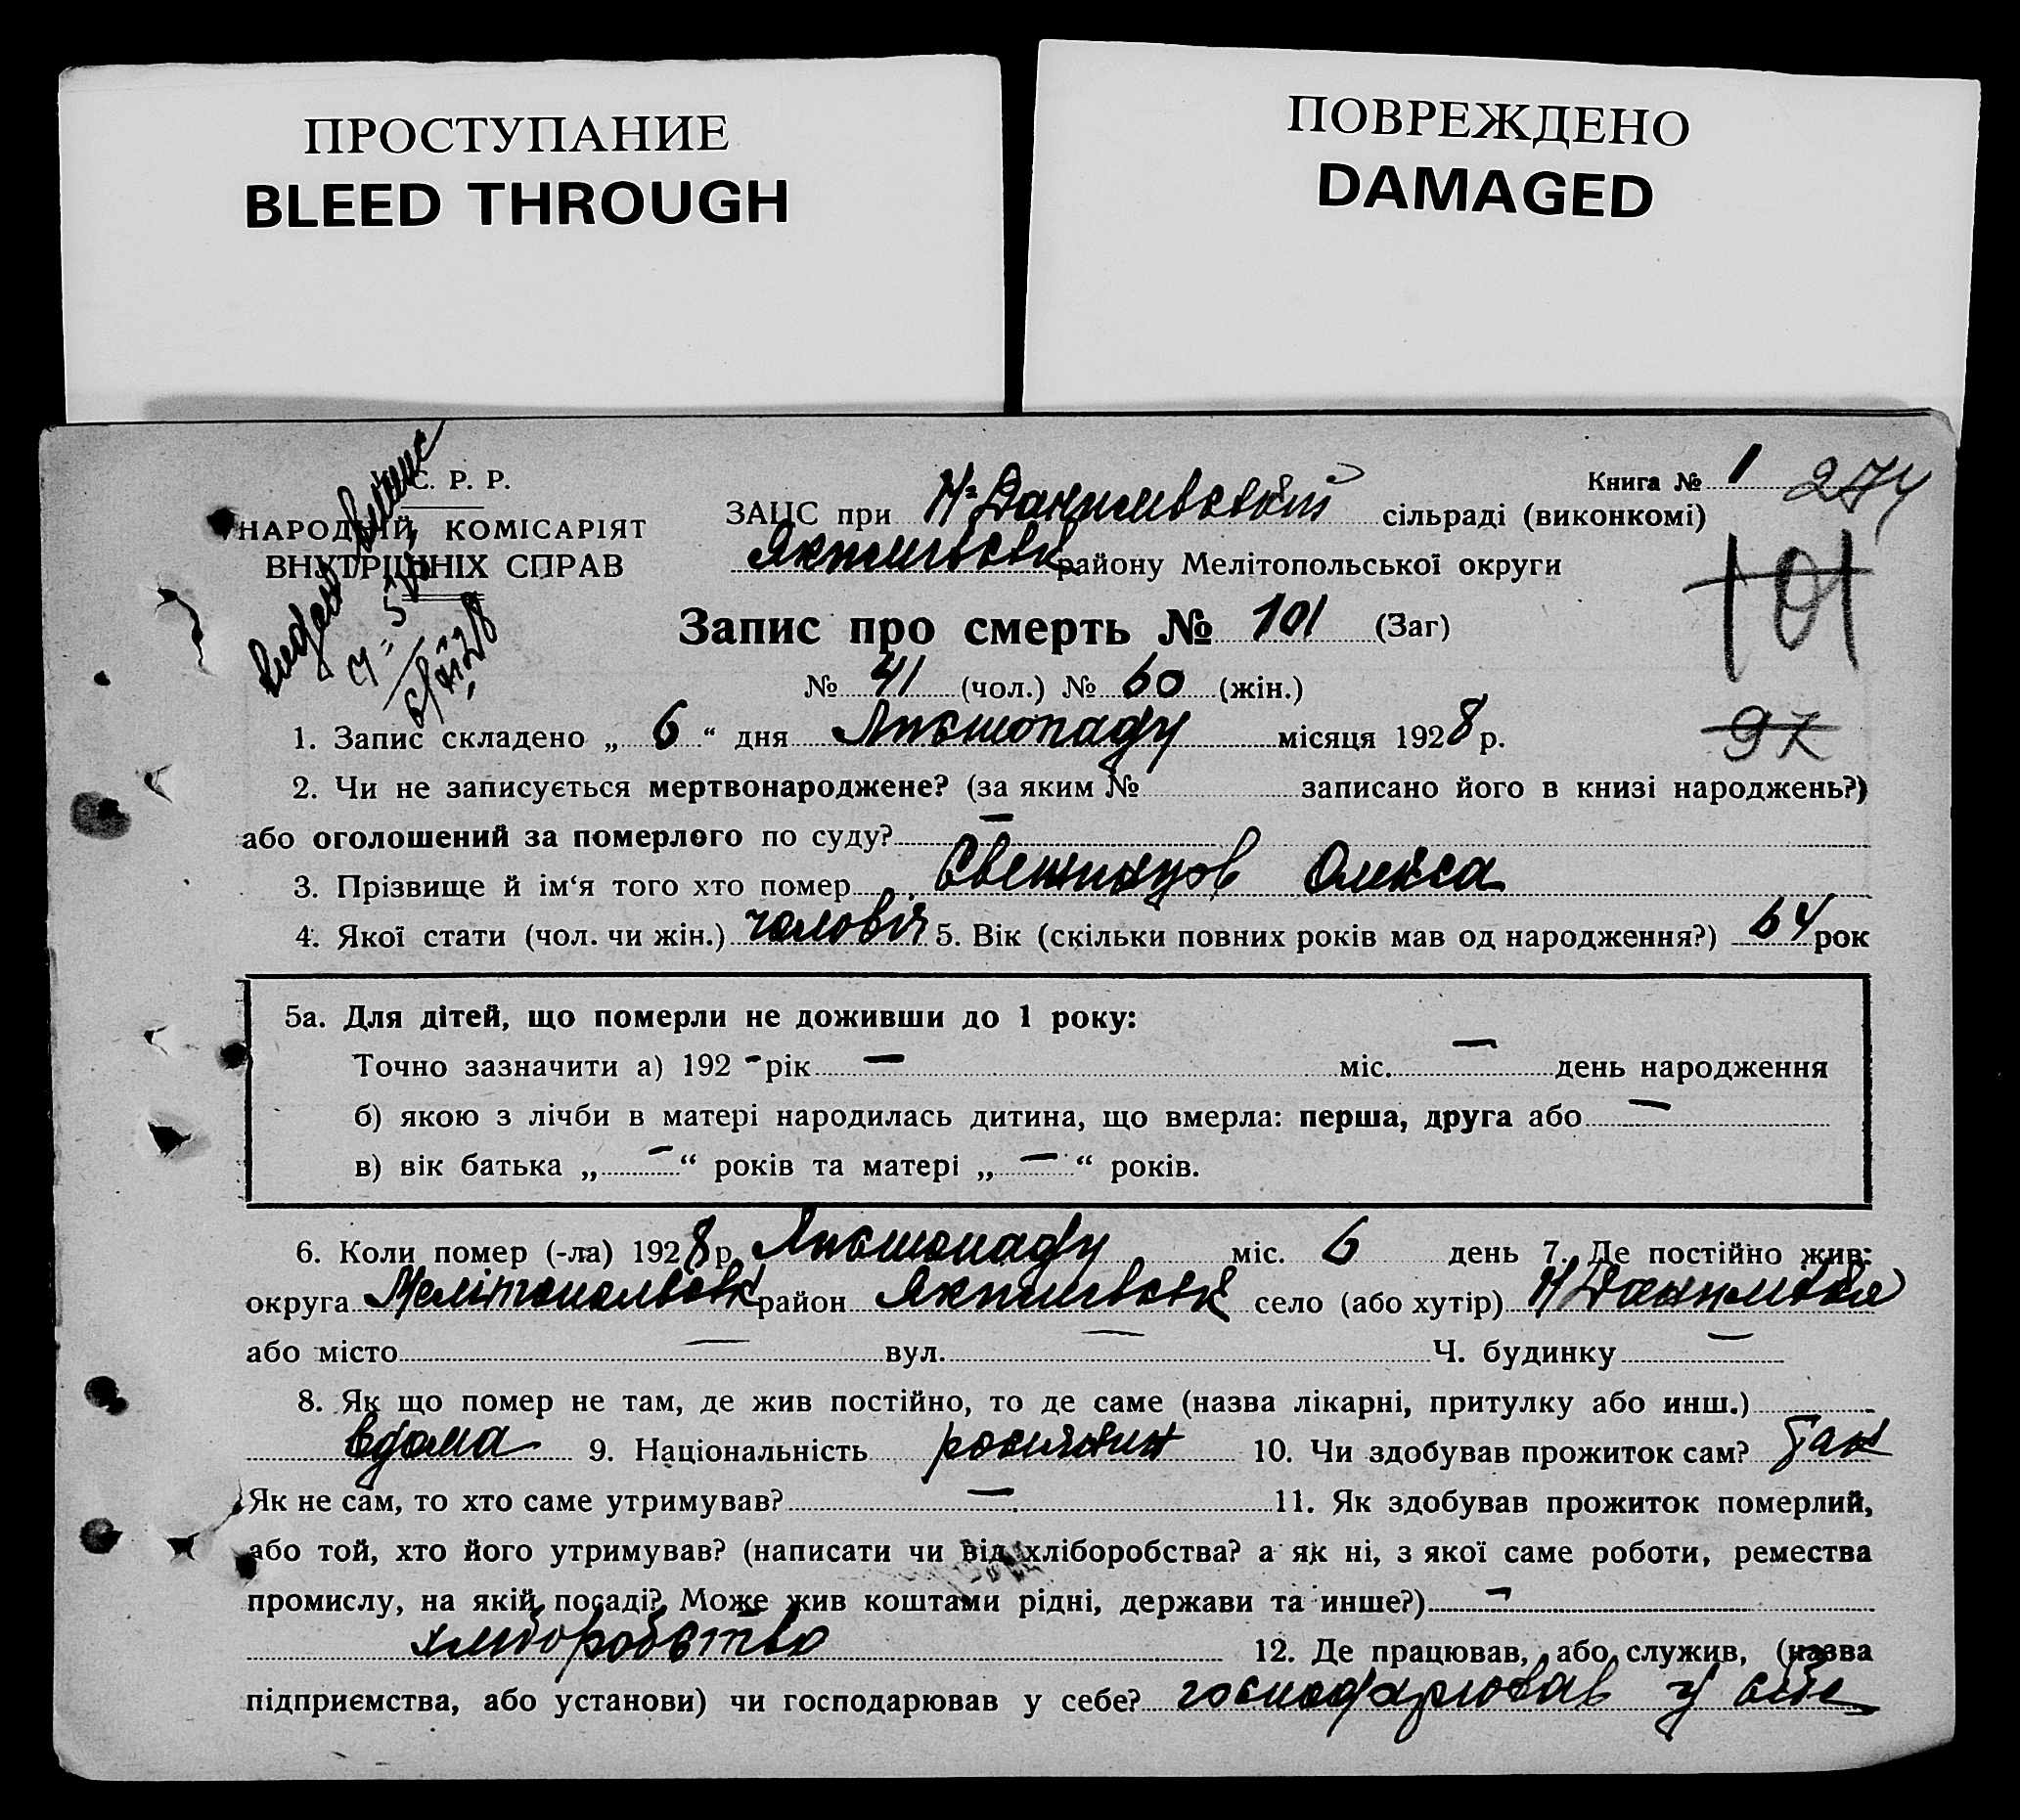 ПРОСТУПАНИЕ
BLEED THROUGH
ПОВРЕЖДЕНО
DAMAGED
С. Р. Р.
НАРОДНІЙ КОМІСАРІЯТ
ВНУТРІШНІХ СПРАВ
Книга № 1 274
ЗАЦС при Н-Данилівській сільраді (виконкомі)
Якимівськ району Мелітопольської округи
101
Запис про смерть № 101 (Заг)
№ 41 (чол.) № 60 (жін.)
97
1. Запис складено „ 6 “ дня Листопаду місяця 1928 р.
2. Чи не записується мертвонароджене? (за яким № записано його в книзі народжень?)
або оголошений за померлого по суду? —
3. Прізвище й ім‘я того хто помер Олекса
4. Якої стати (чол. чи жін.) чоловіч 5. Вік (скільки повних років мав од народження?) 64 рок
5а. Для дітей, що померли не доживши до 1 року:
Точно зазначити а) 192 - рік — міс. — день народження
б) якою з лічби в матері народилась дитина, що вмерла: перша, друга або —
в) вік батька „ — “ років та матері „ — “ років.
6. Коли помер (-ла) 1928 р. Листопаду міс. 6 день 7. Де постійно жив:
округа Мелітопольськ район Якимівськ село (або хутір) Н Данилівка
або місто — вул. — Ч. будинку —
8. Як що помер не там, де жив постійно, то де саме (назва лікарні, притулку або инш.)
вдома 9. Національність росиянин 10. Чи здобував прожиток сам? Так
Як не сам, то хто саме утримував? — 11. Як здобував прожиток померлий,
або той, хто його утримував? (написати чи від хліборобства? а як ні, з якої саме роботи, ремества
промислу, на якій посаді? Може жив коштами рідні, держави та инше?) -
хліборобство 12. Де працював, або служив, (назва
підприємства, або установи) чи господарював у себе? господарював у себе